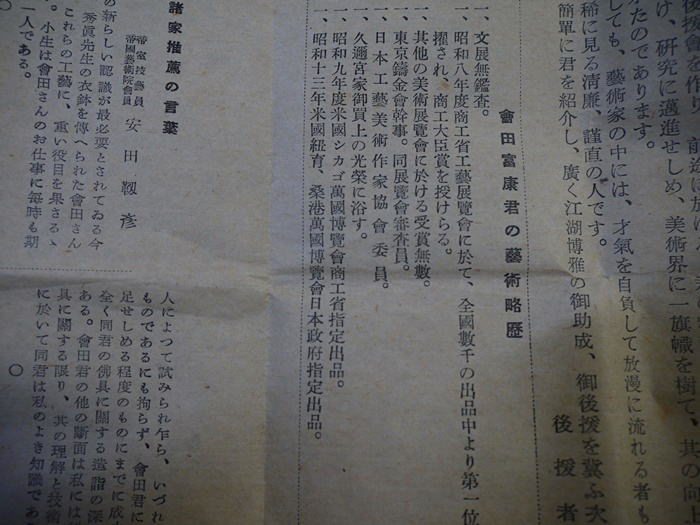 後援會を作
け、研究に邁進せしめ、美術界に一旗幟を樹て、其の向
たのであります。
しても、藝術家の中には、才氣を自負して放漫に流れる者も
稀に見る清廉、謹直の人です。
簡單に君を紹介し、廣く江湖博雅の御助成、御後援を冀ふ次
後援者
會田富康君の藝術略歴
一、文展無鑑査。
一、昭和八年度商工省工藝展覽會に於て、全國數千の出品中より第一位
擢され、商工大臣賞を授けらる。
一、其他の美術展覽會に於ける受賞無數。
一、東京鑄金會幹事。同展覽會審査員。
一、日本工藝美術作家協會委員。
一、久邇宮家御買上の光榮に浴す。
一、昭和九年度米國シカゴ萬國博覽會商工省指定出品。
一、昭和十三年米國紐育、桑港萬國博覽會日本政府指定出品。
諸家推薦の言葉
帝室技藝員
帝國藝術院會員
安田靫彦
の新らしい認識が最必要とされてゐる今
秀眞先生の衣鉢を傳へられた會田さん
これらの工藝に、重い役目を果さるゝ
。小生は會田さんのお仕事に毎時も期
一人である。
○
人によつて試みられ乍ら、いづれ
ものであるにも拘らず、會田君に
足せしめる程度のものにまでに成
全く同君の佛具に關する造詣の深
ある。會田君の他の斷面は私には
具に關する限り、其の理解と技術
に於いて同君は私のよき知識であ
○